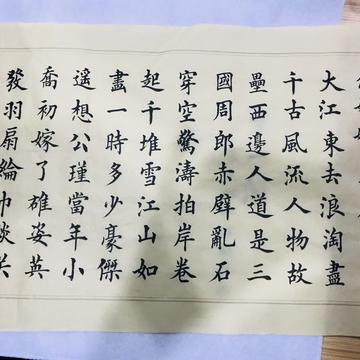 大江東去浪淘盡
千古風流人物故
壘西邊人道是三
國周郎赤壁亂石
穿空驚濤拍岸卷
起千堆雪江山如
畫一時多少豪傑
遥想公瑾當年小
喬初嫁了雄姿英
發羽扇綸巾談笑